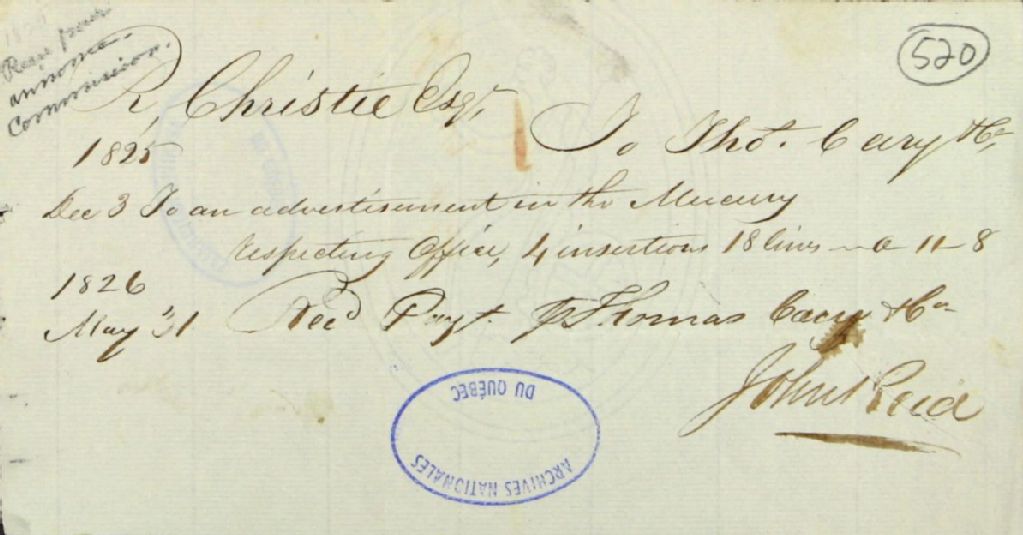 520
Reçu par
annonce
Commission.
R, Christie Esqr,
To Thos. Cary & Co,
1825
Dec 3 To an advertisement in the Mercury
respecting Office, 4 insertions 18 lines — 0 11–8
1826
May 31 Recd Payt. Thomas Cary & Co
John Reid
ARCHIVES NATIONALES
DU QUÉBEC